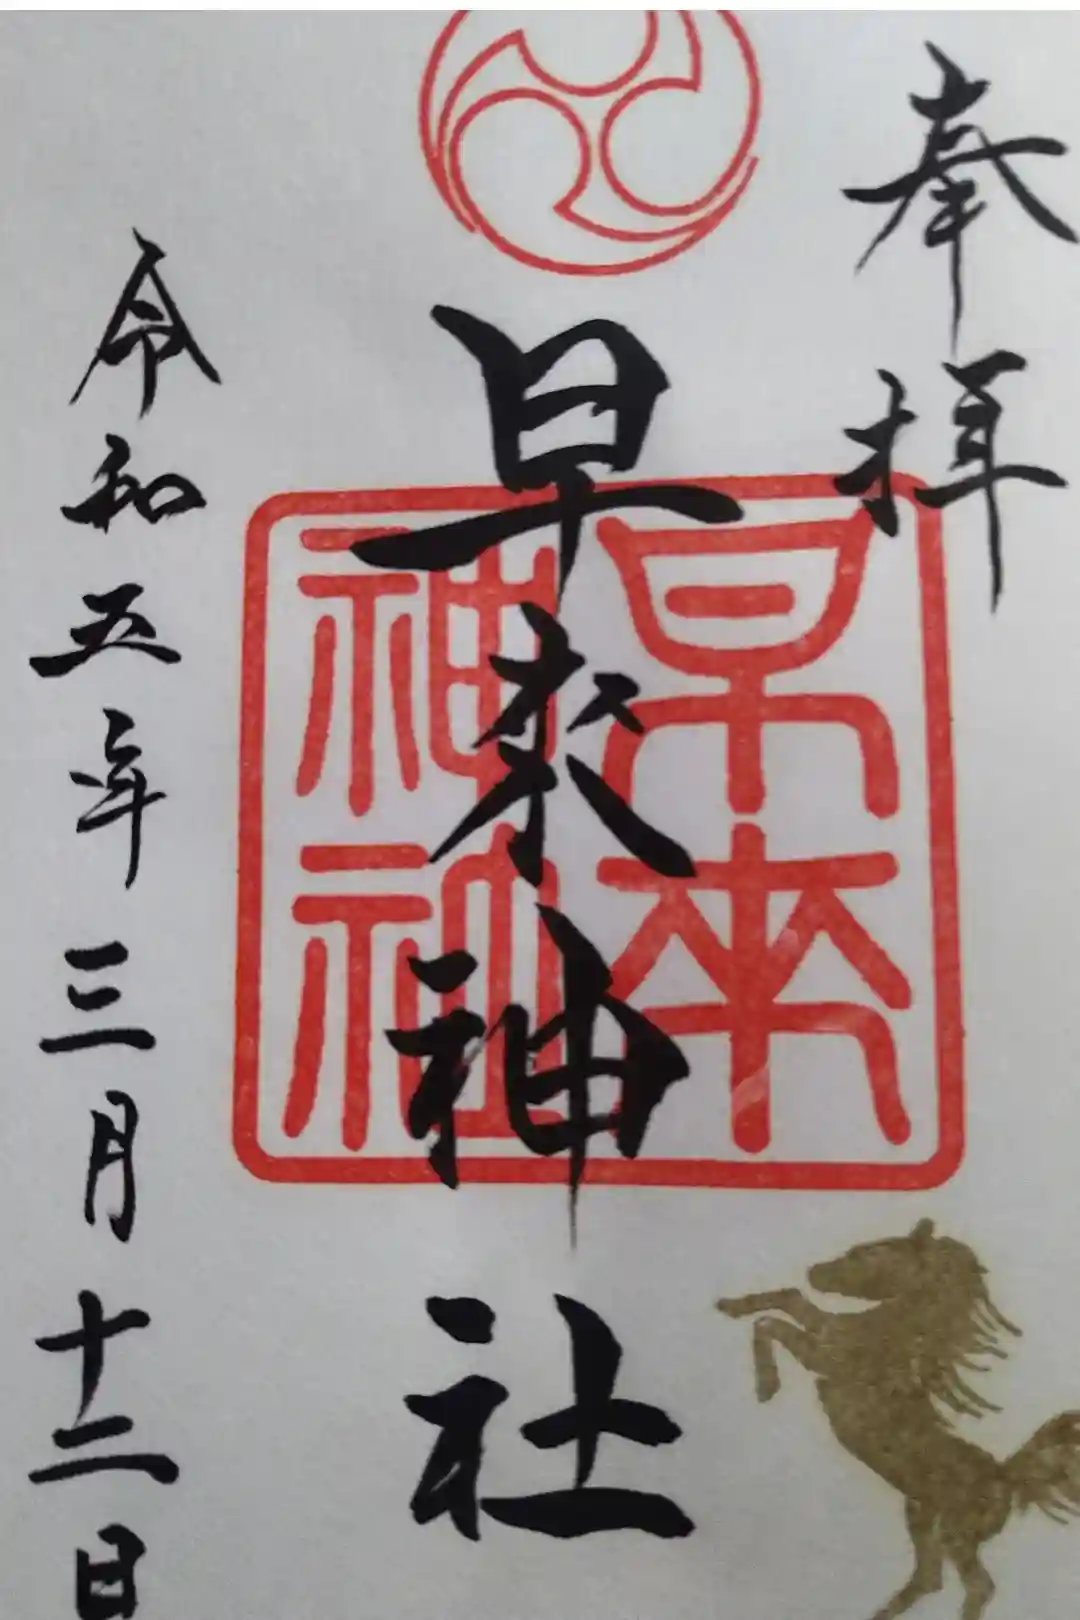 奉拝
早来神社
早来神社
令和五年三月十二日